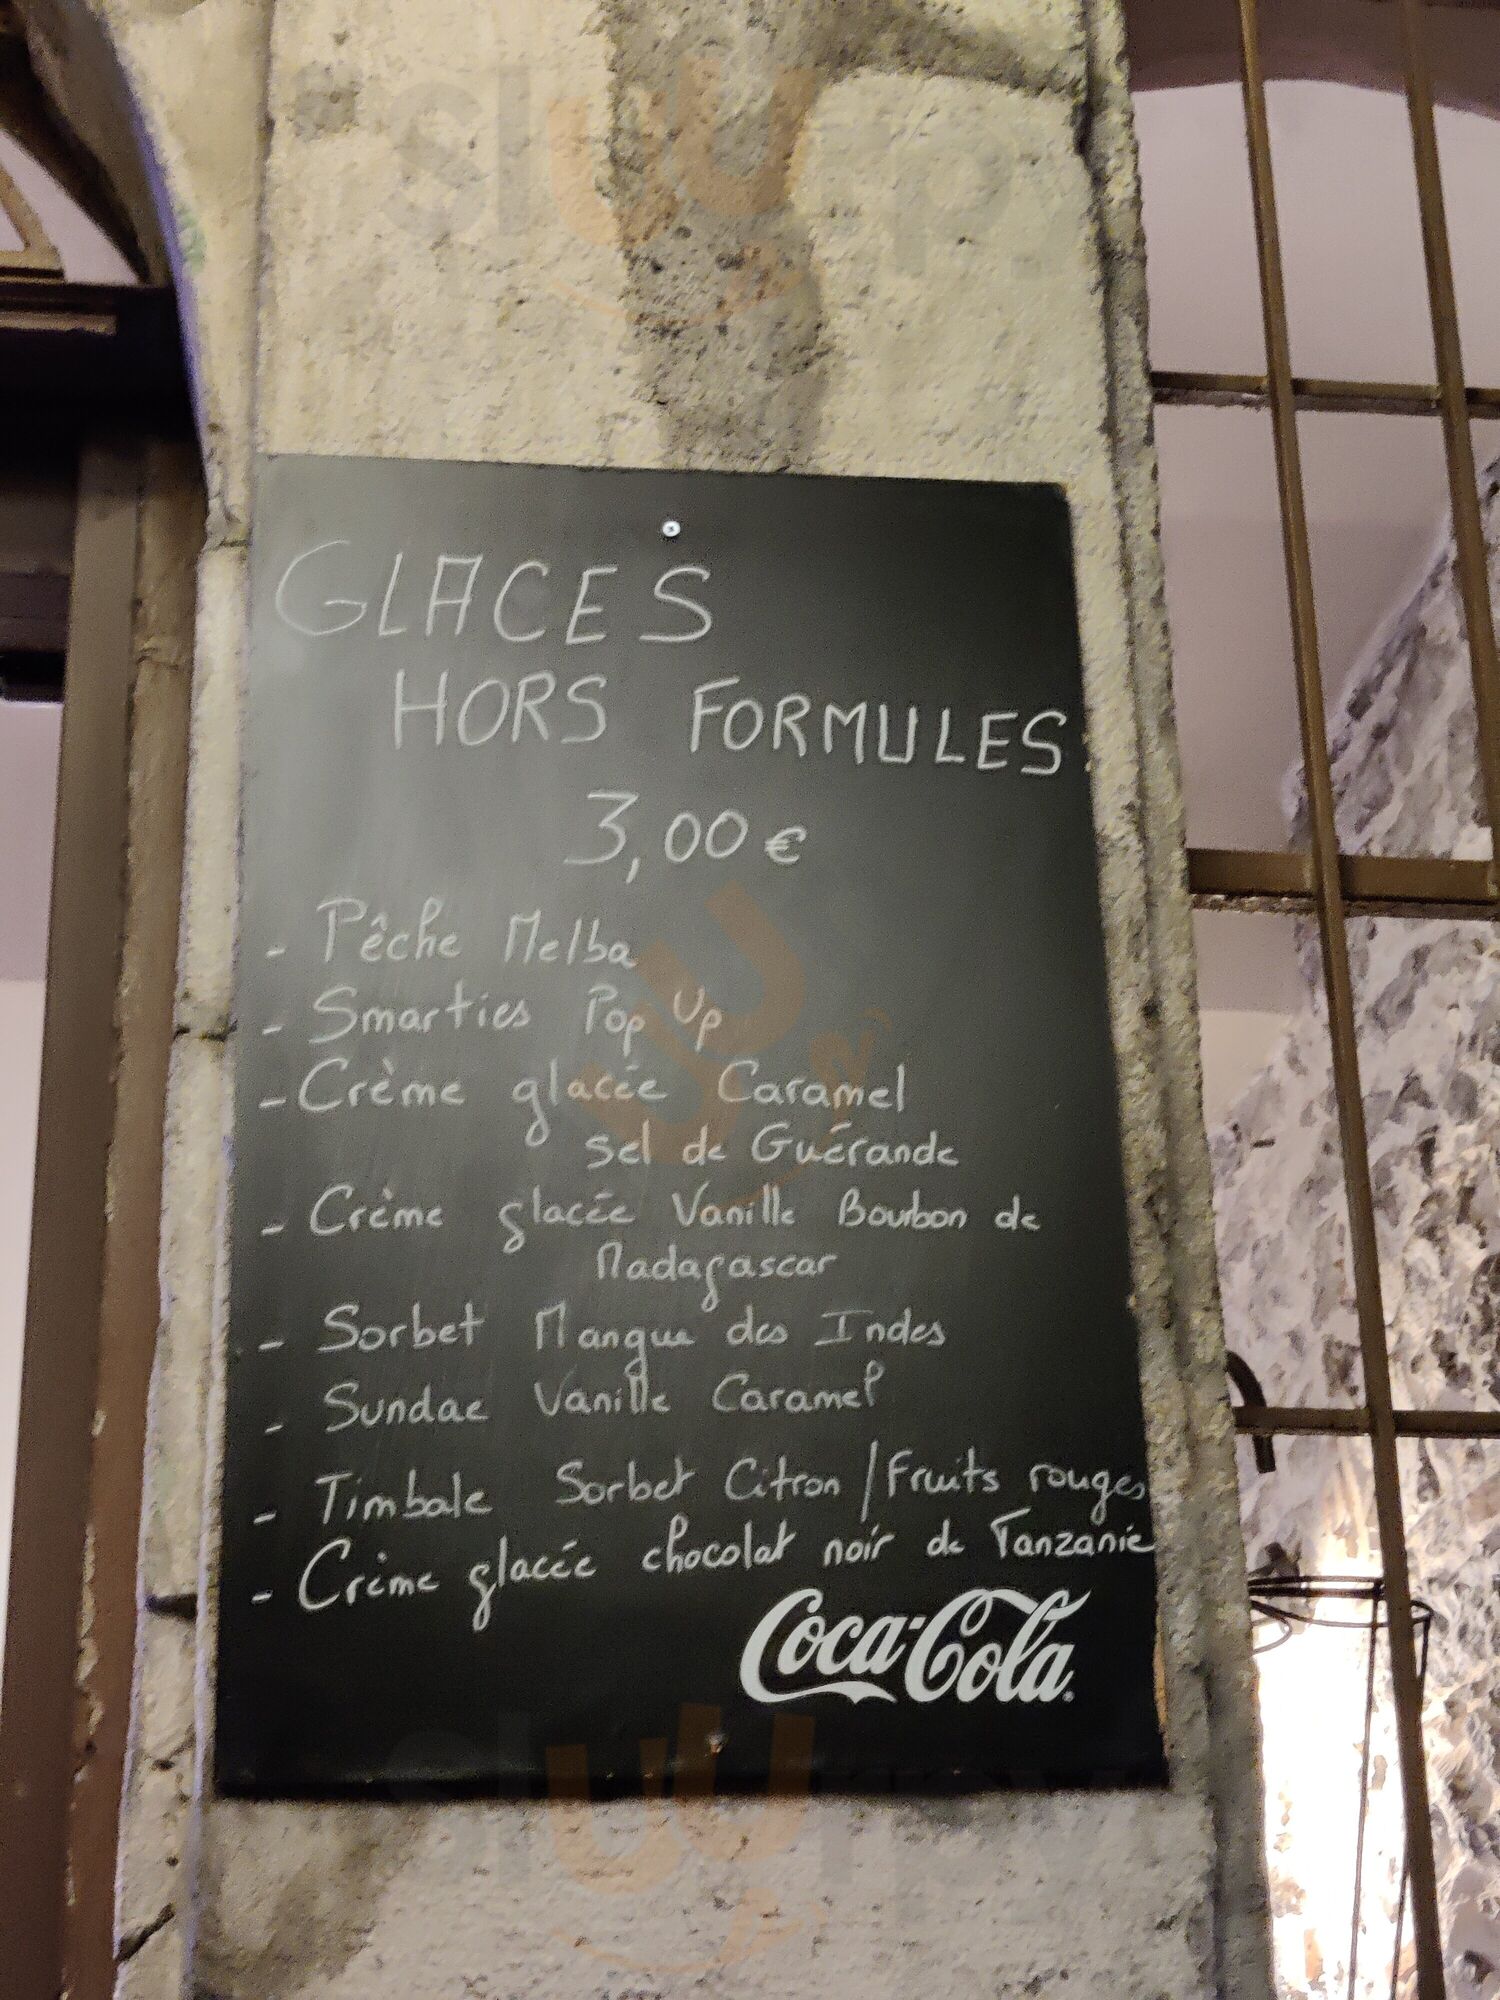 sluurpy
GLACES
HORS FORMULES
3,00 €
- Pêche Melba
- Smarties Pop Up
- Crème glacée Caramel
sel de Guérande
- Crème glacée Vanille Bourbon de
Madagascar
- Sorbet Mangue des Indes
- Sundae Vanille Caramel
- Timbale Sorbet Citron / Fruits rouges
- Crème glacée chocolat noir de Tanzanie
Coca-Cola
sluurpy